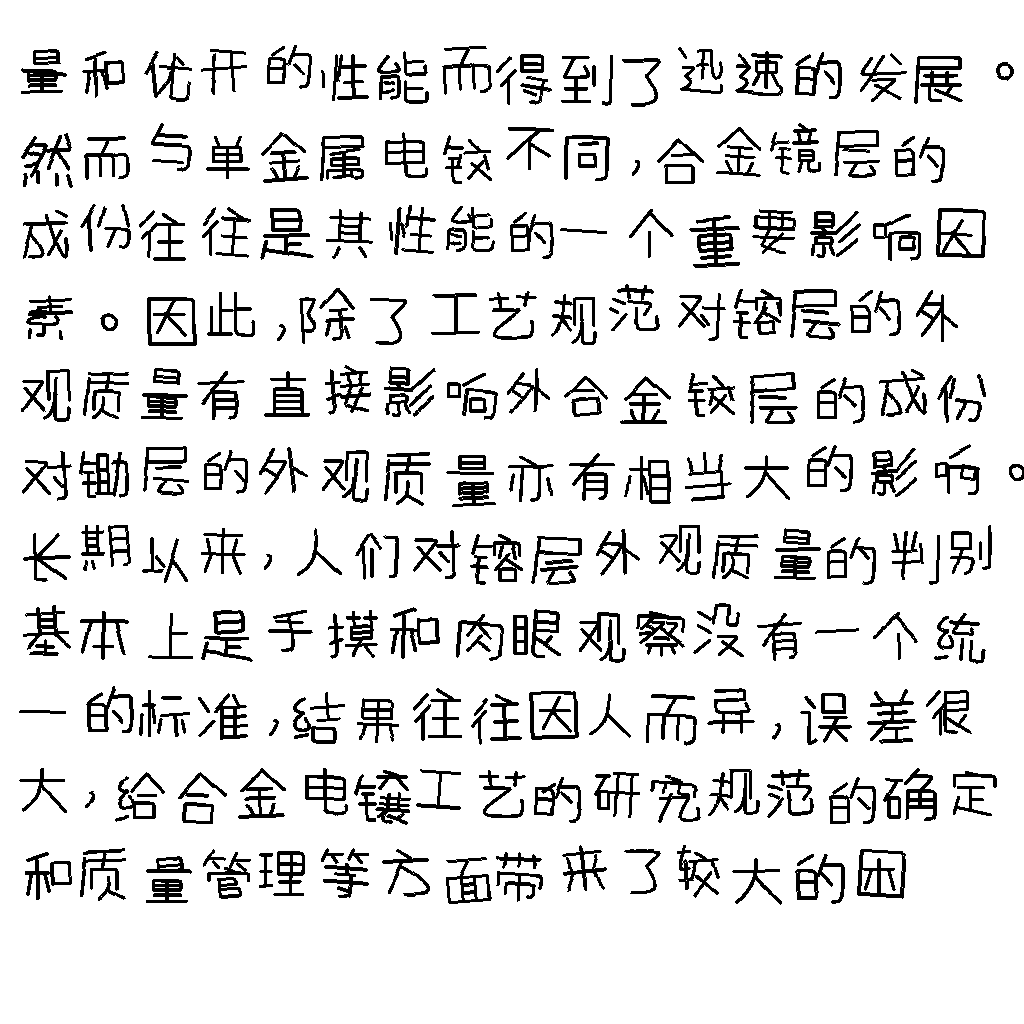 量和优开的性能而得到了迅速的发展。
然而与单金属电铰不同,合金镜层的
成份往往是其性能的一个重要影响因
素。因此,除了工艺规范对镕层的外
观质量有直接影响外合金铰层的成份
对锄层的外观质量亦有相当大的影响。
长期以来,人们对镕层外观质量的判别
基本上是手摸和肉眼观察没有一个统
一的标准,结果往往因人而异,误差很
大,给合金电镶工艺的研究规范的确定
和质量管理等方面带来了较大的困